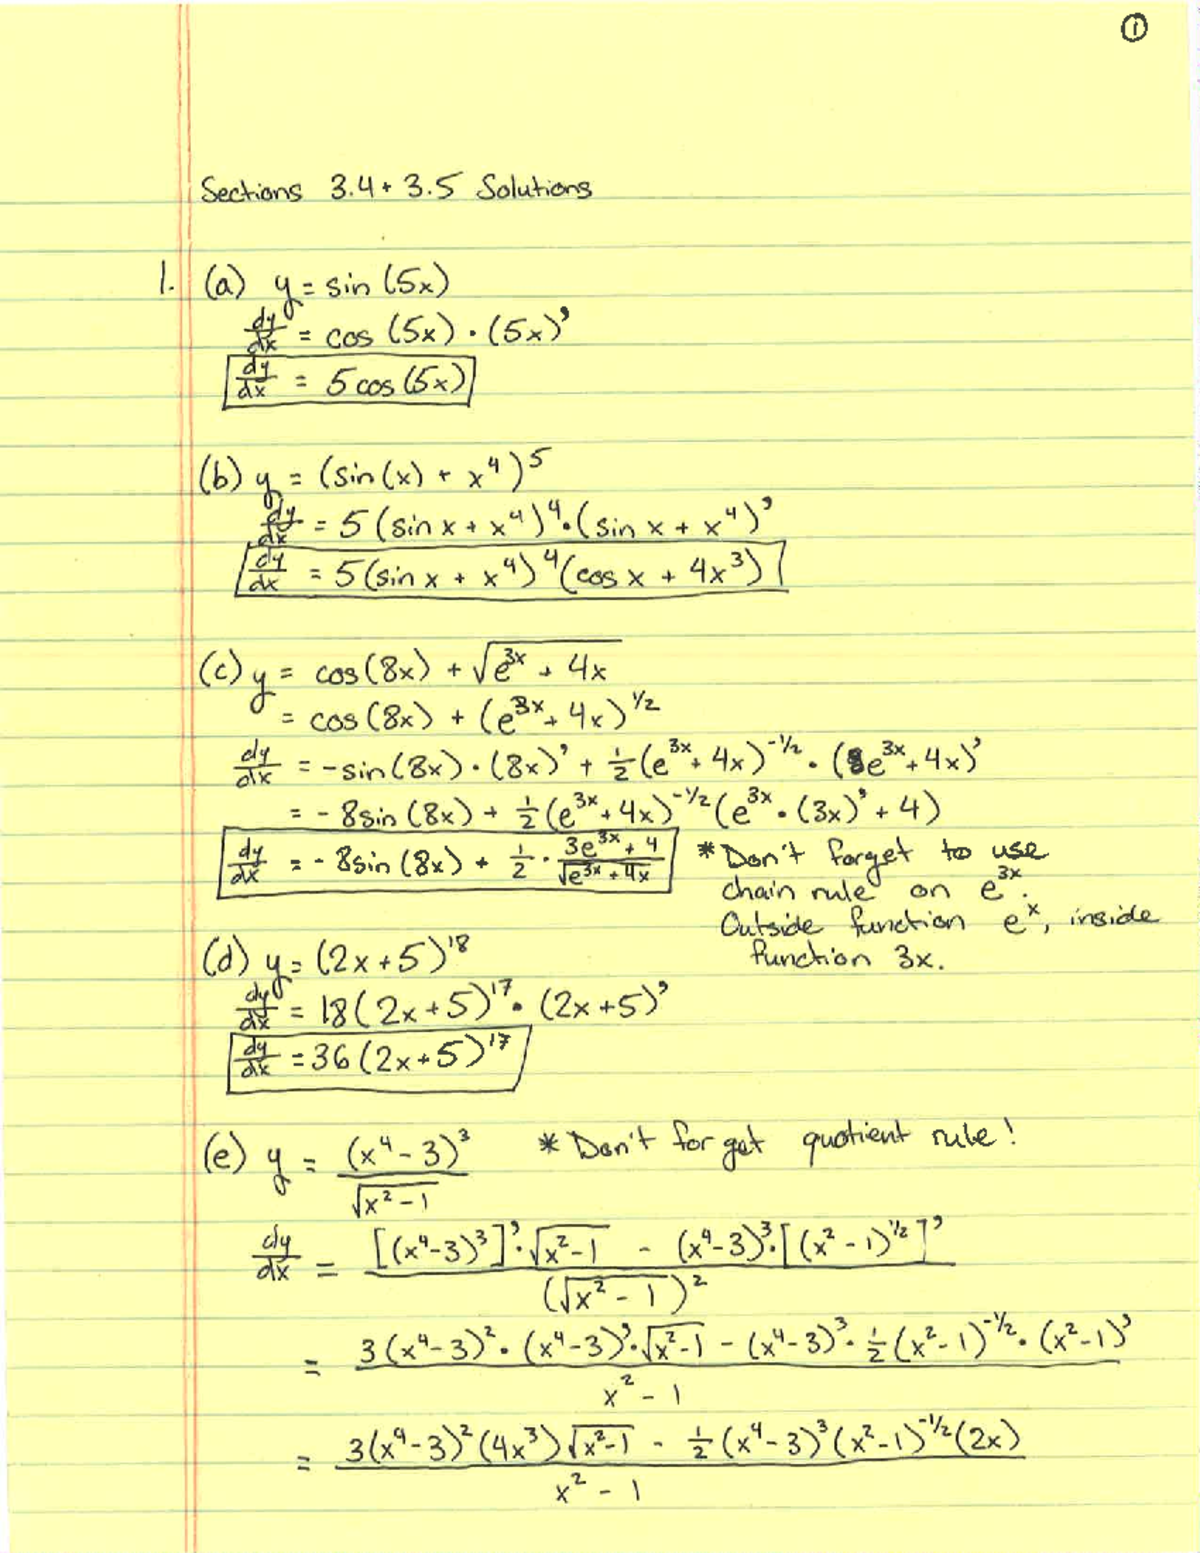 ①
Sections 3.4 + 3.5 Solutions
1. (a) y = sin (5x)
dy/dx = cos (5x) · (5x)'
dy/dx = 5 cos (5x)
(b) y = (sin(x) + x⁴)⁵
dy/dx = 5 (sin x + x⁴)⁴ · (sin x + x⁴)'
dy/dx = 5(sin x + x⁴)⁴(cos x + 4x³)
(c) y = cos(8x) + √(e^{3x} + 4x)
= cos(8x) + (e^{3x} + 4x)^{1/2}
dy/dx = -sin(8x) · (8x)' + 1/2 (e^{3x} + 4x)^{-1/2} · (e^{3x} + 4x)'
= - 8sin(8x) + 1/2 (e^{3x} + 4x)^{-1/2} (e^{3x} · (3x)' + 4)
dy/dx = - 8sin(8x) + 1/2 · (3e^{3x} + 4)/√(e^{3x} + 4x)
* Don't forget to use
chain rule on e^{3x}.
Outside function e^x, inside
function 3x.
(d) y = (2x+5)^{18}
dy/dx = 18(2x+5)^{17} · (2x+5)'
dy/dx = 36(2x+5)^{17}
(e) y = (x⁴-3)³/√(x²-1) * Don't forget quotient rule!
dy/dx = ([(x⁴-3)³]' · √(x²-1) - (x⁴-3)³ · [(x²-1)^{1/2}]')/(√(x²-1))²
= (3(x⁴-3)² · (x⁴-3)' · √(x²-1) - (x⁴-3)³ · 1/2 (x²-1)^{-1/2} · (x²-1)')/(x²-1)
= (3(x⁴-3)²(4x³)√(x²-1) - 1/2 (x⁴-3)³(x²-1)^{-1/2}(2x))/(x²-1)